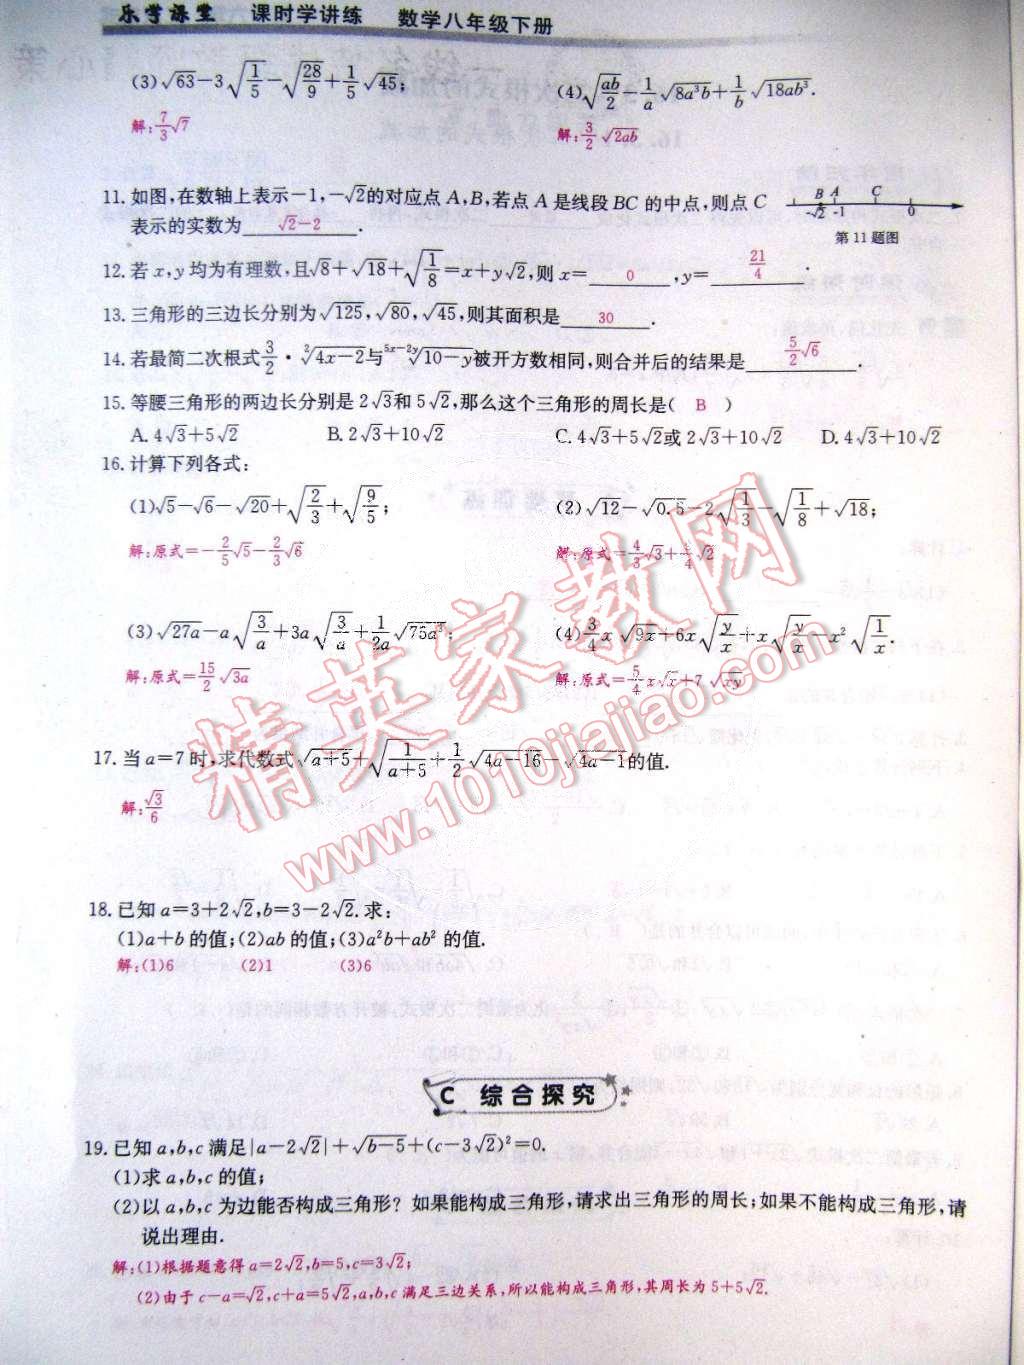 乐学课堂 课时学讲练 数学八年级下册
(3)√63-3√(1/5)-√(28/9)+1/5√45; (4)√(ab/2)-1/a√(8a³b)+1/b√(18ab³).
解:7/3√7 解:3/2√2ab
11.如图,在数轴上表示-1,-√2的对应点A,B,若点A是线段BC的中点,则点C
表示的实数为 √2-2 .
B A C
-√2 -1 0
第11题图
12.若x,y均为有理数,且√8+√18+√(1/8)=x+y√2,则x= 0 ,y= 21/4 .
13.三角形的三边长分别为√125,√80,√45,则其面积是 30 .
14.若最简二次根式3/2·²√(4x-2)与⁵ˣ⁻²ʸ√(10-y)被开方数相同,则合并后的结果是 5/2√6 .
15.等腰三角形的两边长分别是2√3和5√2,那么这个三角形的周长是( B )
A.4√3+5√2 B.2√3+10√2 C.4√3+5√2或2√3+10√2 D.4√3+10√2
16.计算下列各式:
(1)√5-√6-√20+√(2/3)+√(9/5); (2)√12-√0.5-2√(1/3)-√(1/8)+√18;
解:原式=-2/5√5-2/3√6 解:原式=4/3√3+ /4√2
(3)√27a-a√(3/a)+3a√(3/a)+1/2a√(75a³); (4)3/4x√9x+6x√(y/x)+x√(y/x)-x²√(1/x).
解:原式=15/2√3a 解:原式=5/4x√x+7√xy
17.当a=7时,求代数式√(a+5)+√(1/(a+5))+1/2√(4a-16)-√(4a-1)的值.
解:√3/6
18.已知a=3+2√2,b=3-2√2.求:
(1)a+b的值;(2)ab的值;(3)a²b+ab²的值.
解:(1)6 (2)1 (3)6
C 综合探究
19.已知a,b,c满足|a-2√2|+√(b-5)+(c-3√2)²=0.
(1)求a,b,c的值;
(2)以a,b,c为边能否构成三角形?如果能构成三角形,请求出三角形的周长;如果不能构成三角形,请
说出理由.
解:(1)根据题意得a=2√2,b=5,c=3√2;
(2)由于c-a=√2,c+a=5√2,a,b,c满足三边关系,所以能构成三角形,其周长为5+5√2.
精英家教网
www.1010jiajiao.com